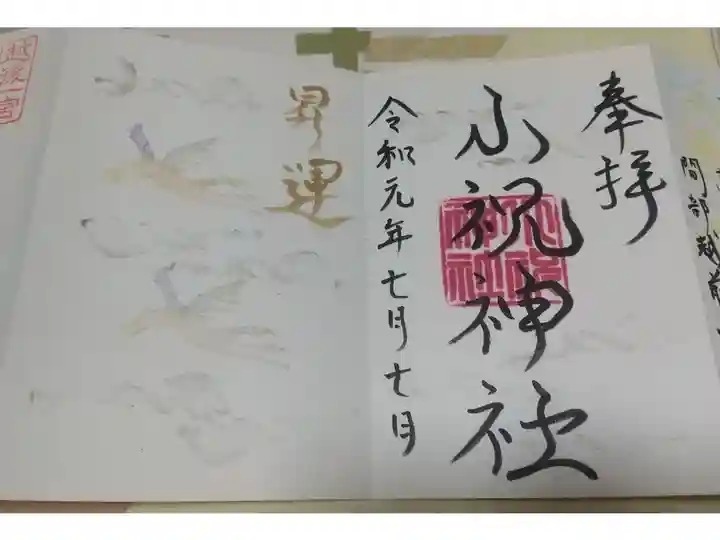 奉拝
小祝神社
令和元年七月七日
昇運
越後一宮
間部越前